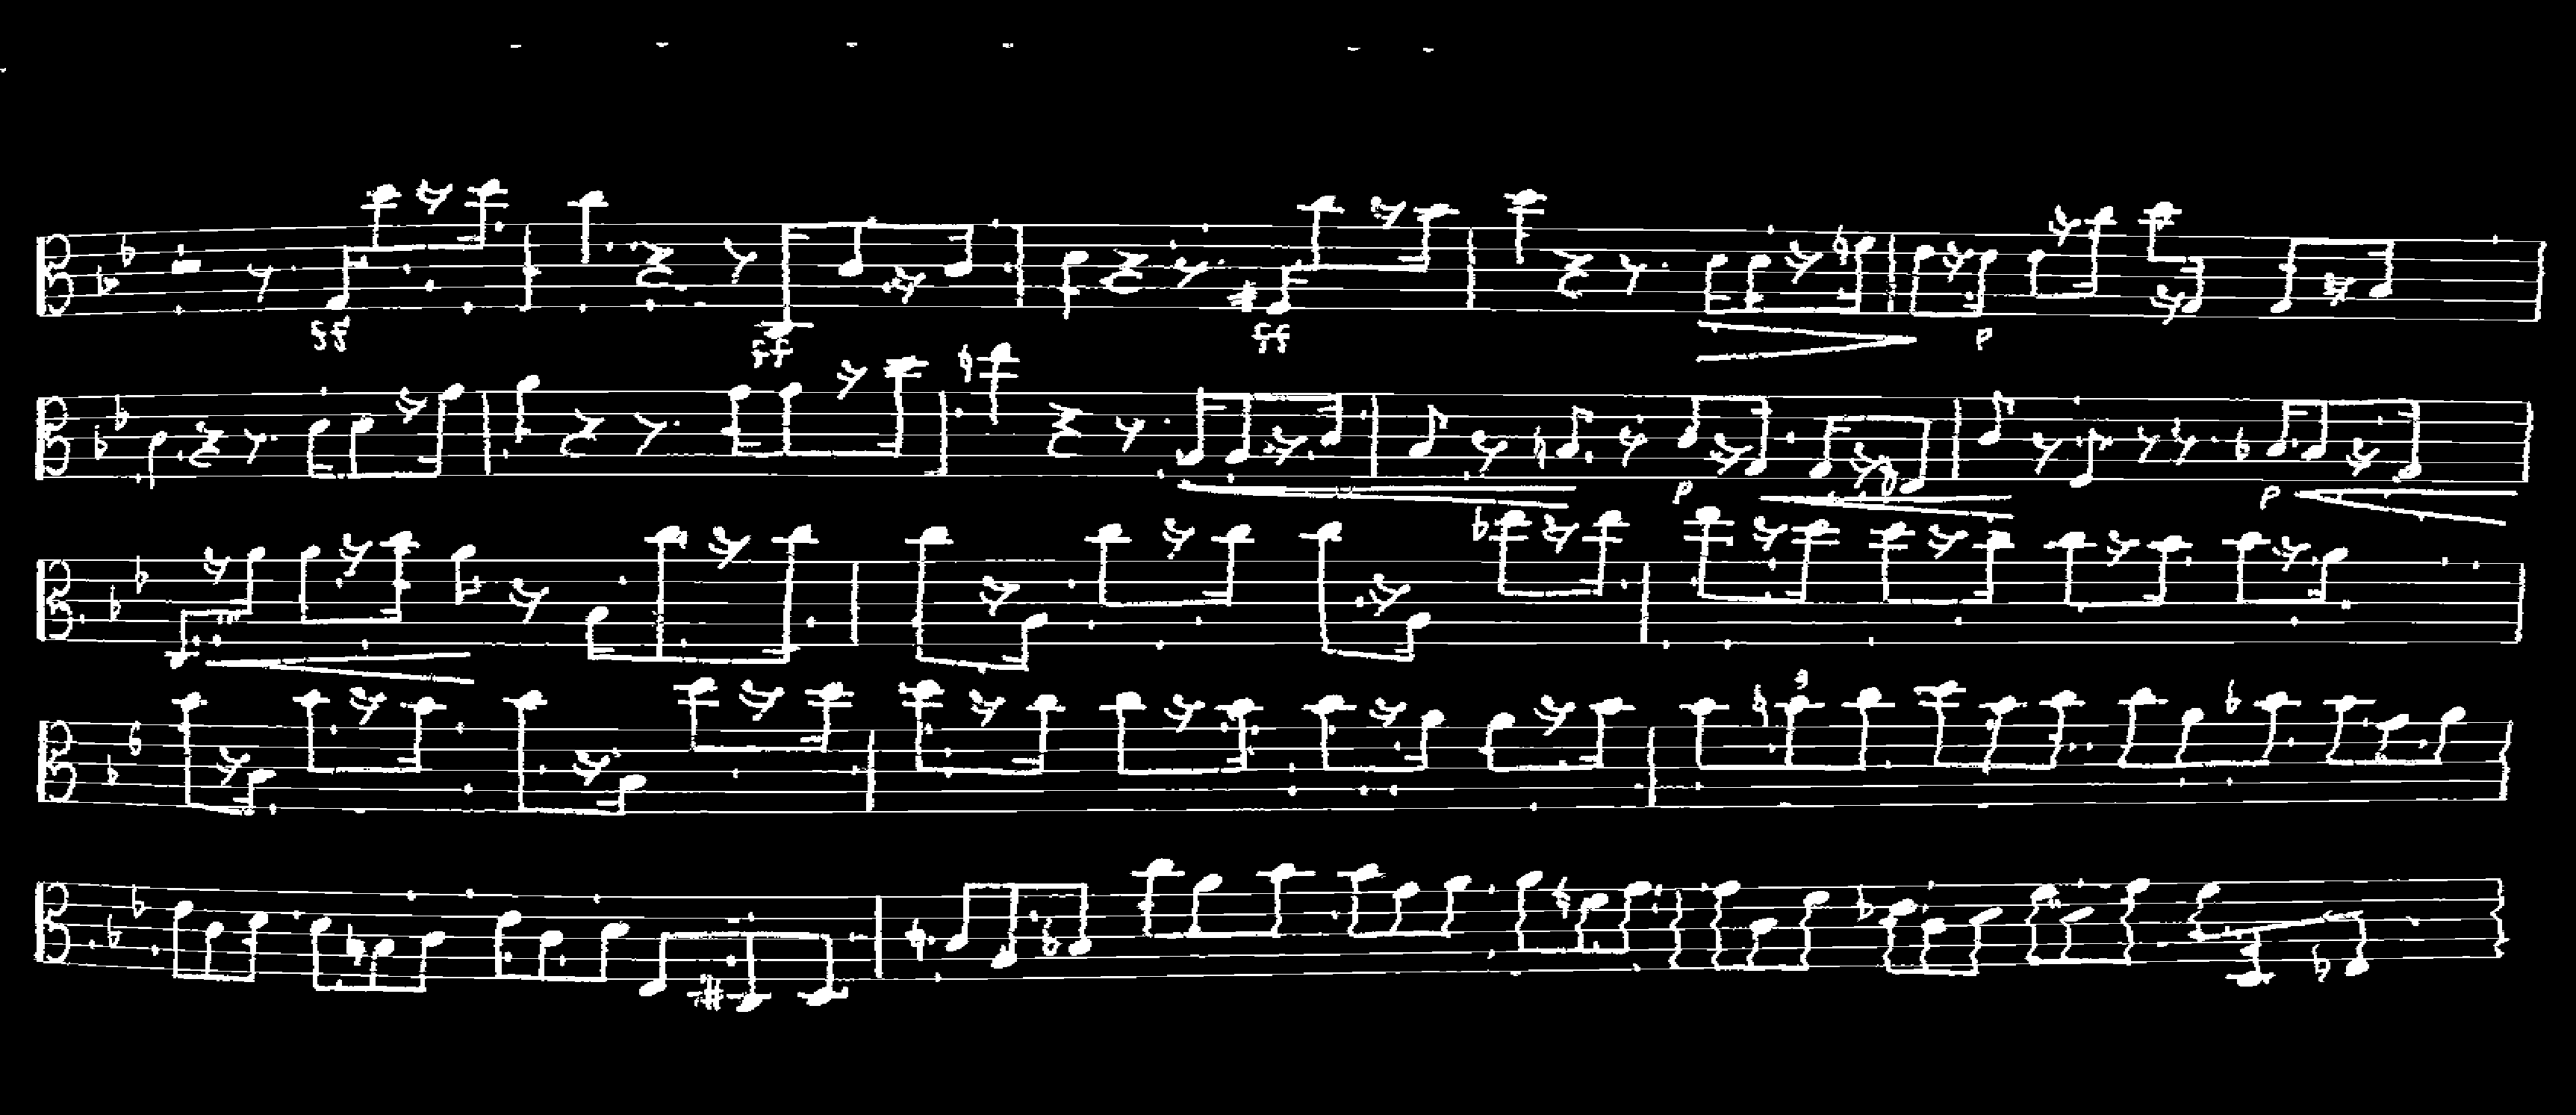 ff ff ff p
p p
3